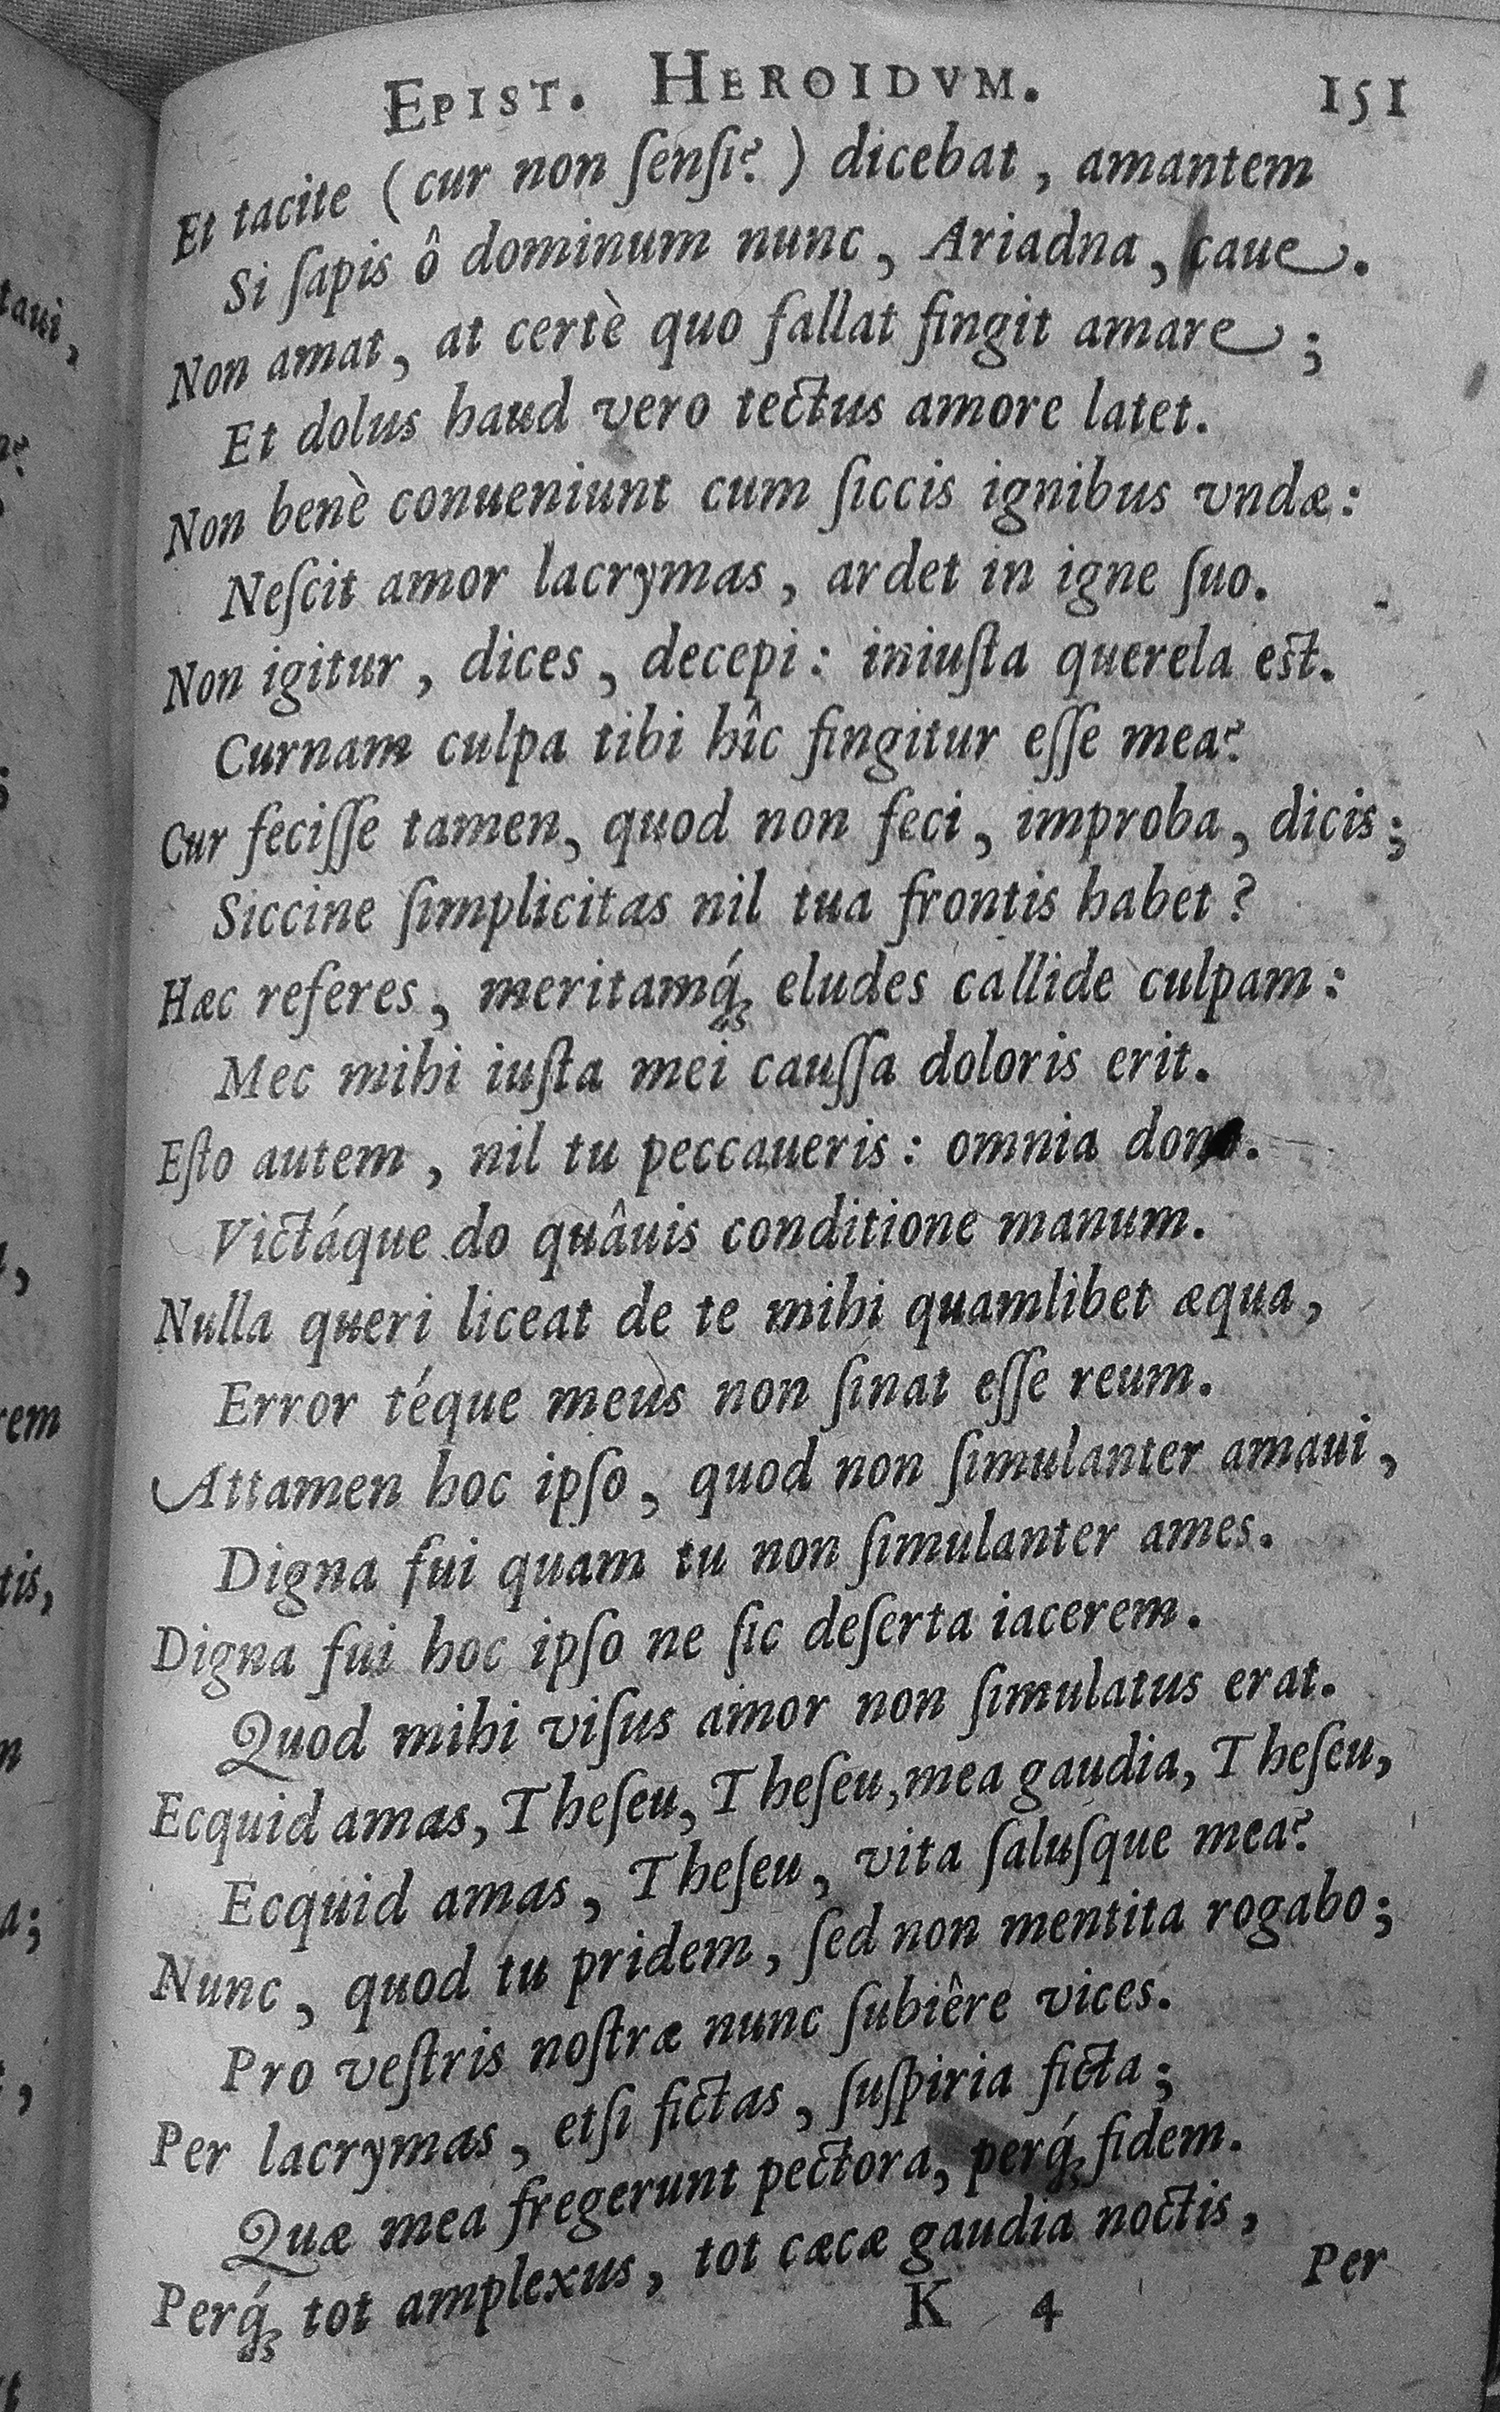 EPIST. HEROIDVM. 151
Et tacite (cur non ſenſi?) dicebat, amantem
Si ſapis ô dominum nunc, Ariadna, caue.
Non amat, at certè quo fallat fingit amare;
Et dolus haud vero tectus amore latet.
Non benè conueniunt cum ſiccis ignibus vndæ:
Neſcit amor lacrymas, ardet in igne ſuo.
Non igitur, dices, decepi: iniuſta querela est.
Curnam culpa tibi hîc fingitur eſſe mea?
Cur feciſſe tamen, quod non feci, improba, dicis;
Siccine ſimplicitas nil tua frontis habet?
Hæc referes, meritamq́ꝫ eludes callide culpam:
Mec mihi iuſta mei cauſſa doloris erit.
Eſto autem, nil tu peccaueris: omnia dono.
Victáque do quâuis conditione manum.
Nulla queri liceat de te mihi quamlibet æqua,
Error téque meus non ſinat eſſe reum.
Attamen hoc ipſo, quod non ſimulanter amaui,
Digna fui quam tu non ſimulanter ames.
Digna fui hoc ipſo ne ſic deſerta iacerem.
Quod mihi viſus amor non ſimulatus erat.
Ecquid amas, Theſeu, Theſeu, mea gaudia, Theſeu,
Ecquid amas, Theſeu, vita ſaluſque mea?
Nunc, quod tu pridem, ſed non mentita rogabo;
Pro veſtris noſtræ nunc ſubiêre vices.
Per lacrymas, etſi fictas, ſuſpiria ficta;
Quæ mea fregerunt pectora, perq́ꝫ fidem.
Perq́ꝫ tot amplexus, tot cæcæ gaudia noctis,
K 4 Per
taui,
rem
tis,